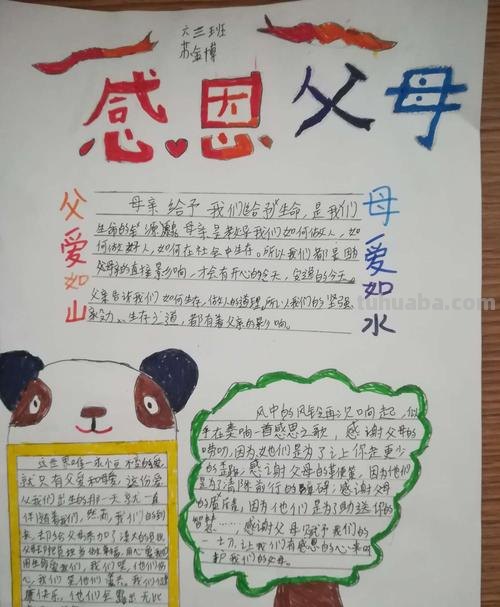 六三班
苏金博
感恩父母
父爱如山
母爱如水
母亲给予我们给予生命,是我们
生命的 源 母亲是教导我们如何做人,如
何做好人,如何在社会中生存。所以我们都是因
父母亲的直接影响,才会有开心的今天,安逸的今天。
父亲告诉我们如何生存,做人的道理,所以我们的坚强
毅力、生存之道,都有着父亲的影响。
tuhuaba.com
这世界唯一永恒不变的爱,
就只有父爱和母爱,这份爱
从我们出生的那一天 就一直
伴随着我们,然而,我们的到
来,却给父母添加了
用生命爱我们,我们哭,他们伤
心,我们笑他们 我们健
康快乐,他们会 无比
风中的风铃再次响起,似
乎在奏响一首感恩之歌,感谢父母的
唠叨,因为她们是为了让你走更少
的弯路,感谢父母的 ,因为他们
是为了清除前行的障碍;感谢父母
的 ,因为他们是为了助送你的
……感谢父母赋予我们的
一切,让我们有感恩的心来
我们的父母。